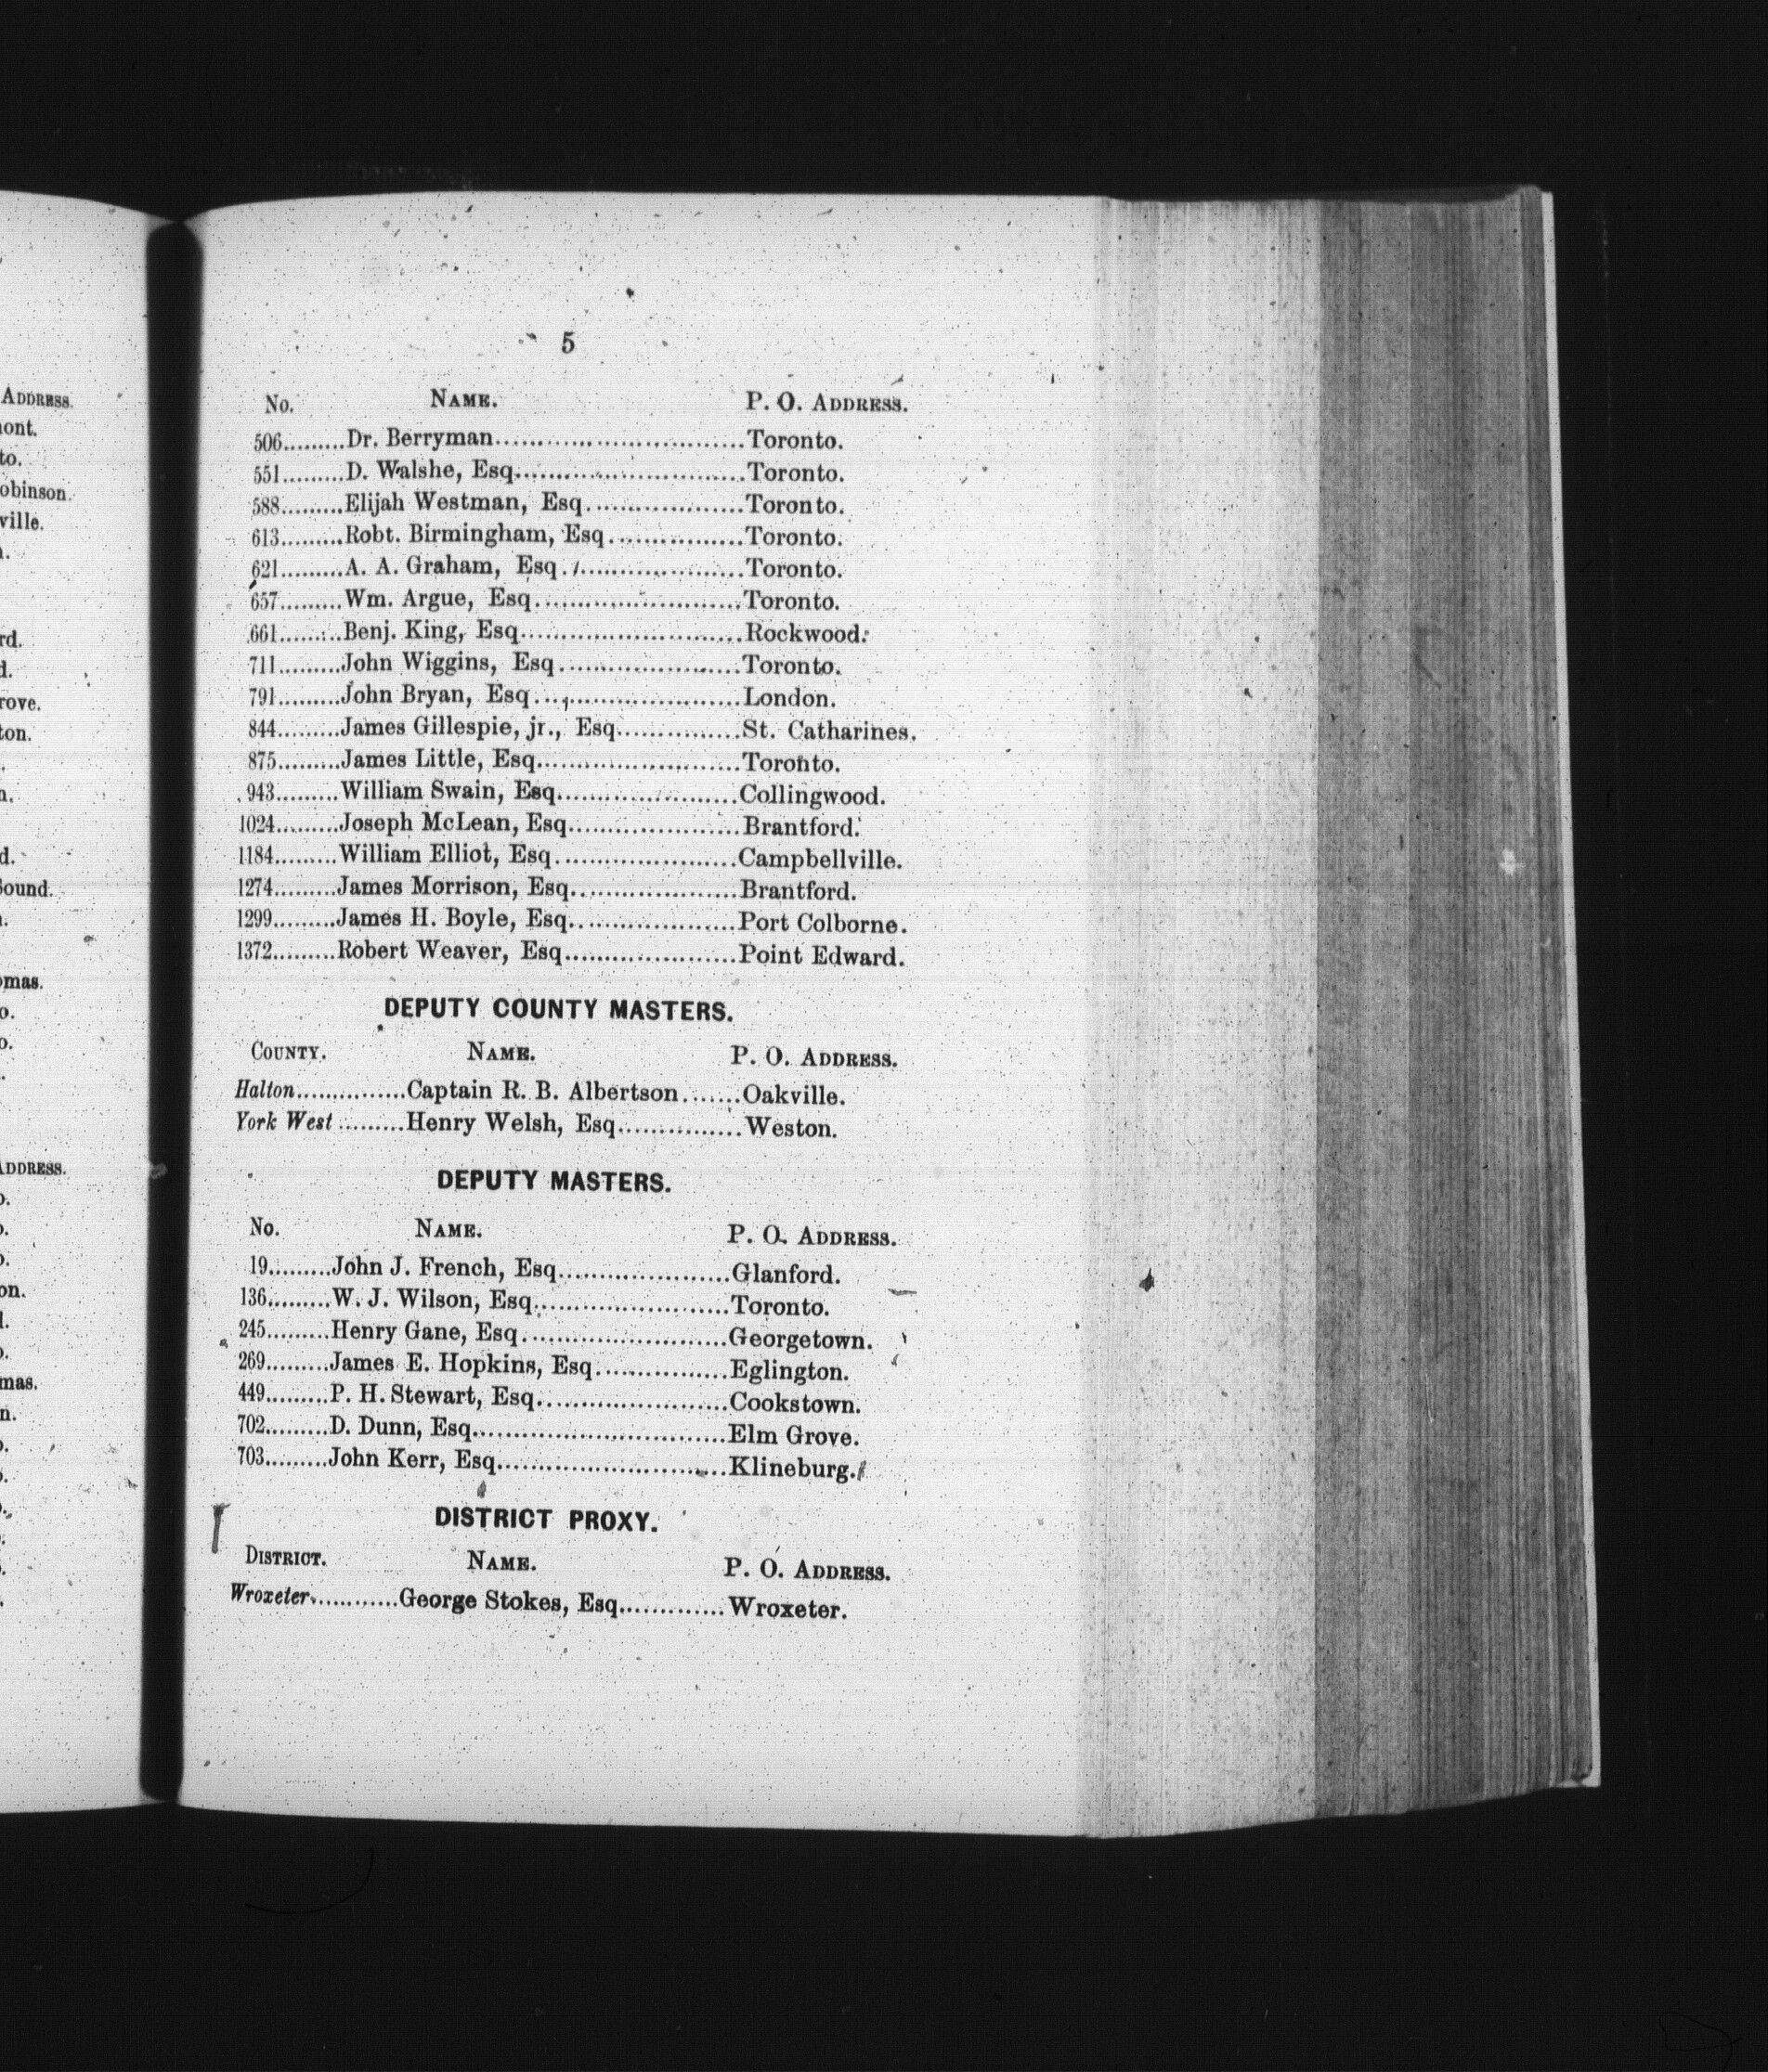 5
No. NAME. P. O. ADDRESS.
506.........Dr. Berryman..............................Toronto.
551.........D. Walshe, Esq............................Toronto.
588.........Elijah Westman, Esq....................Toronto.
613.........Robt. Birmingham, Esq................Toronto.
621.........A. A. Graham, Esq.........................Toronto.
657.........Wm. Argue, Esq...........................Toronto.
661.........Benj. King, Esq...........................Rockwood.
711.........John Wiggins, Esq.......................Toronto.
791.........John Bryan, Esq..........................London.
844.........James Gillespie, jr., Esq...............St. Catharines.
875.........James Little, Esq.........................Toronto.
943.........William Swain, Esq.....................Collingwood.
1024.........Joseph McLean, Esq....................Brantford.
1184.........William Elliot, Esq......................Campbellville.
1274.........James Morrison, Esq....................Brantford.
1299.........James H. Boyle, Esq....................Port Colborne.
1372.........Robert Weaver, Esq.....................Point Edward.
DEPUTY COUNTY MASTERS.
COUNTY. NAME. P. O. ADDRESS.
Halton...............Captain R. B. Albertson.......Oakville.
York West .........Henry Welsh, Esq..............Weston.
DEPUTY MASTERS.
No. NAME. P. O. ADDRESS.
19.........John J. French, Esq.....................Glanford.
136.........W. J. Wilson, Esq........................Toronto.
245.........Henry Gane, Esq.........................Georgetown.
269.........James E. Hopkins, Esq................Eglington.
449.........P. H. Stewart, Esq.......................Cookstown.
702.........D. Dunn, Esq..............................Elm Grove.
703.........John Kerr, Esq............................Klineburg.
DISTRICT PROXY.
DISTRICT. NAME. P. O. ADDRESS.
Wroxeter............George Stokes, Esq.............Wroxeter.